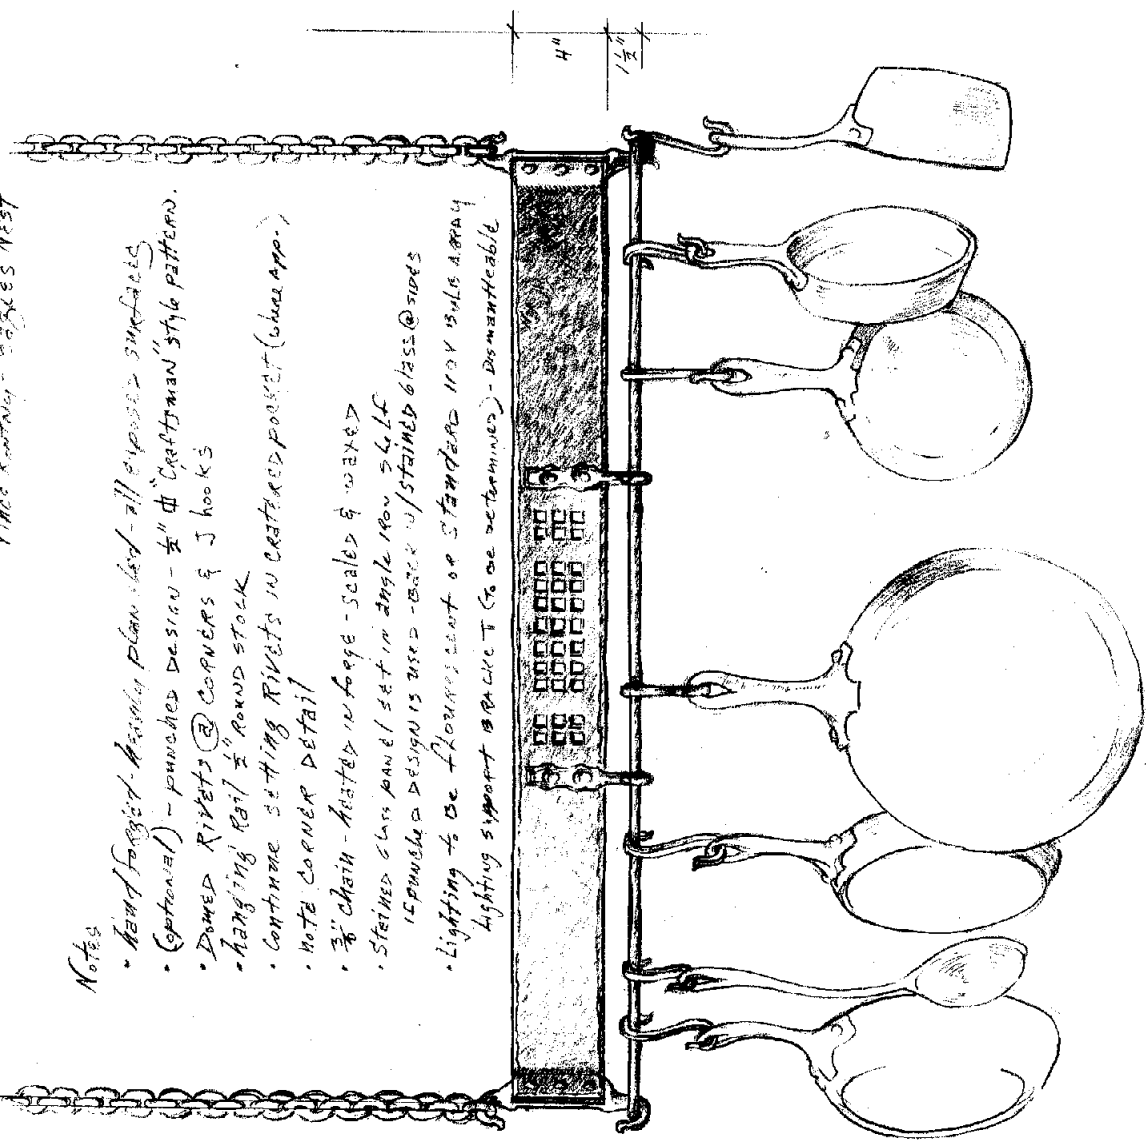 Notes
• hand forged - heavily planished - all exposed surfaces
• (optional) - punched DESIGN - ½" "Craftsman" style pattern.
• DOMED RIVETS @ CORNERS & J hooks
• hanging Rail ½" ROUND STOCK
• Continue setting Rivets in CRATERED POCKET (where app.)
• NOTE CORNER DETAIL
• chain - heated in forge - scaled & waxed
• Stained Glass panel set in angle iron shelf
if punched DESIGN is used - BACK w/ stained Glass @ sides
• Lighting to be flourescent or Standard 110V Bulb ARRAY
Lighting support BRACKET (To be determined) - Dismantleable
4"
1½"